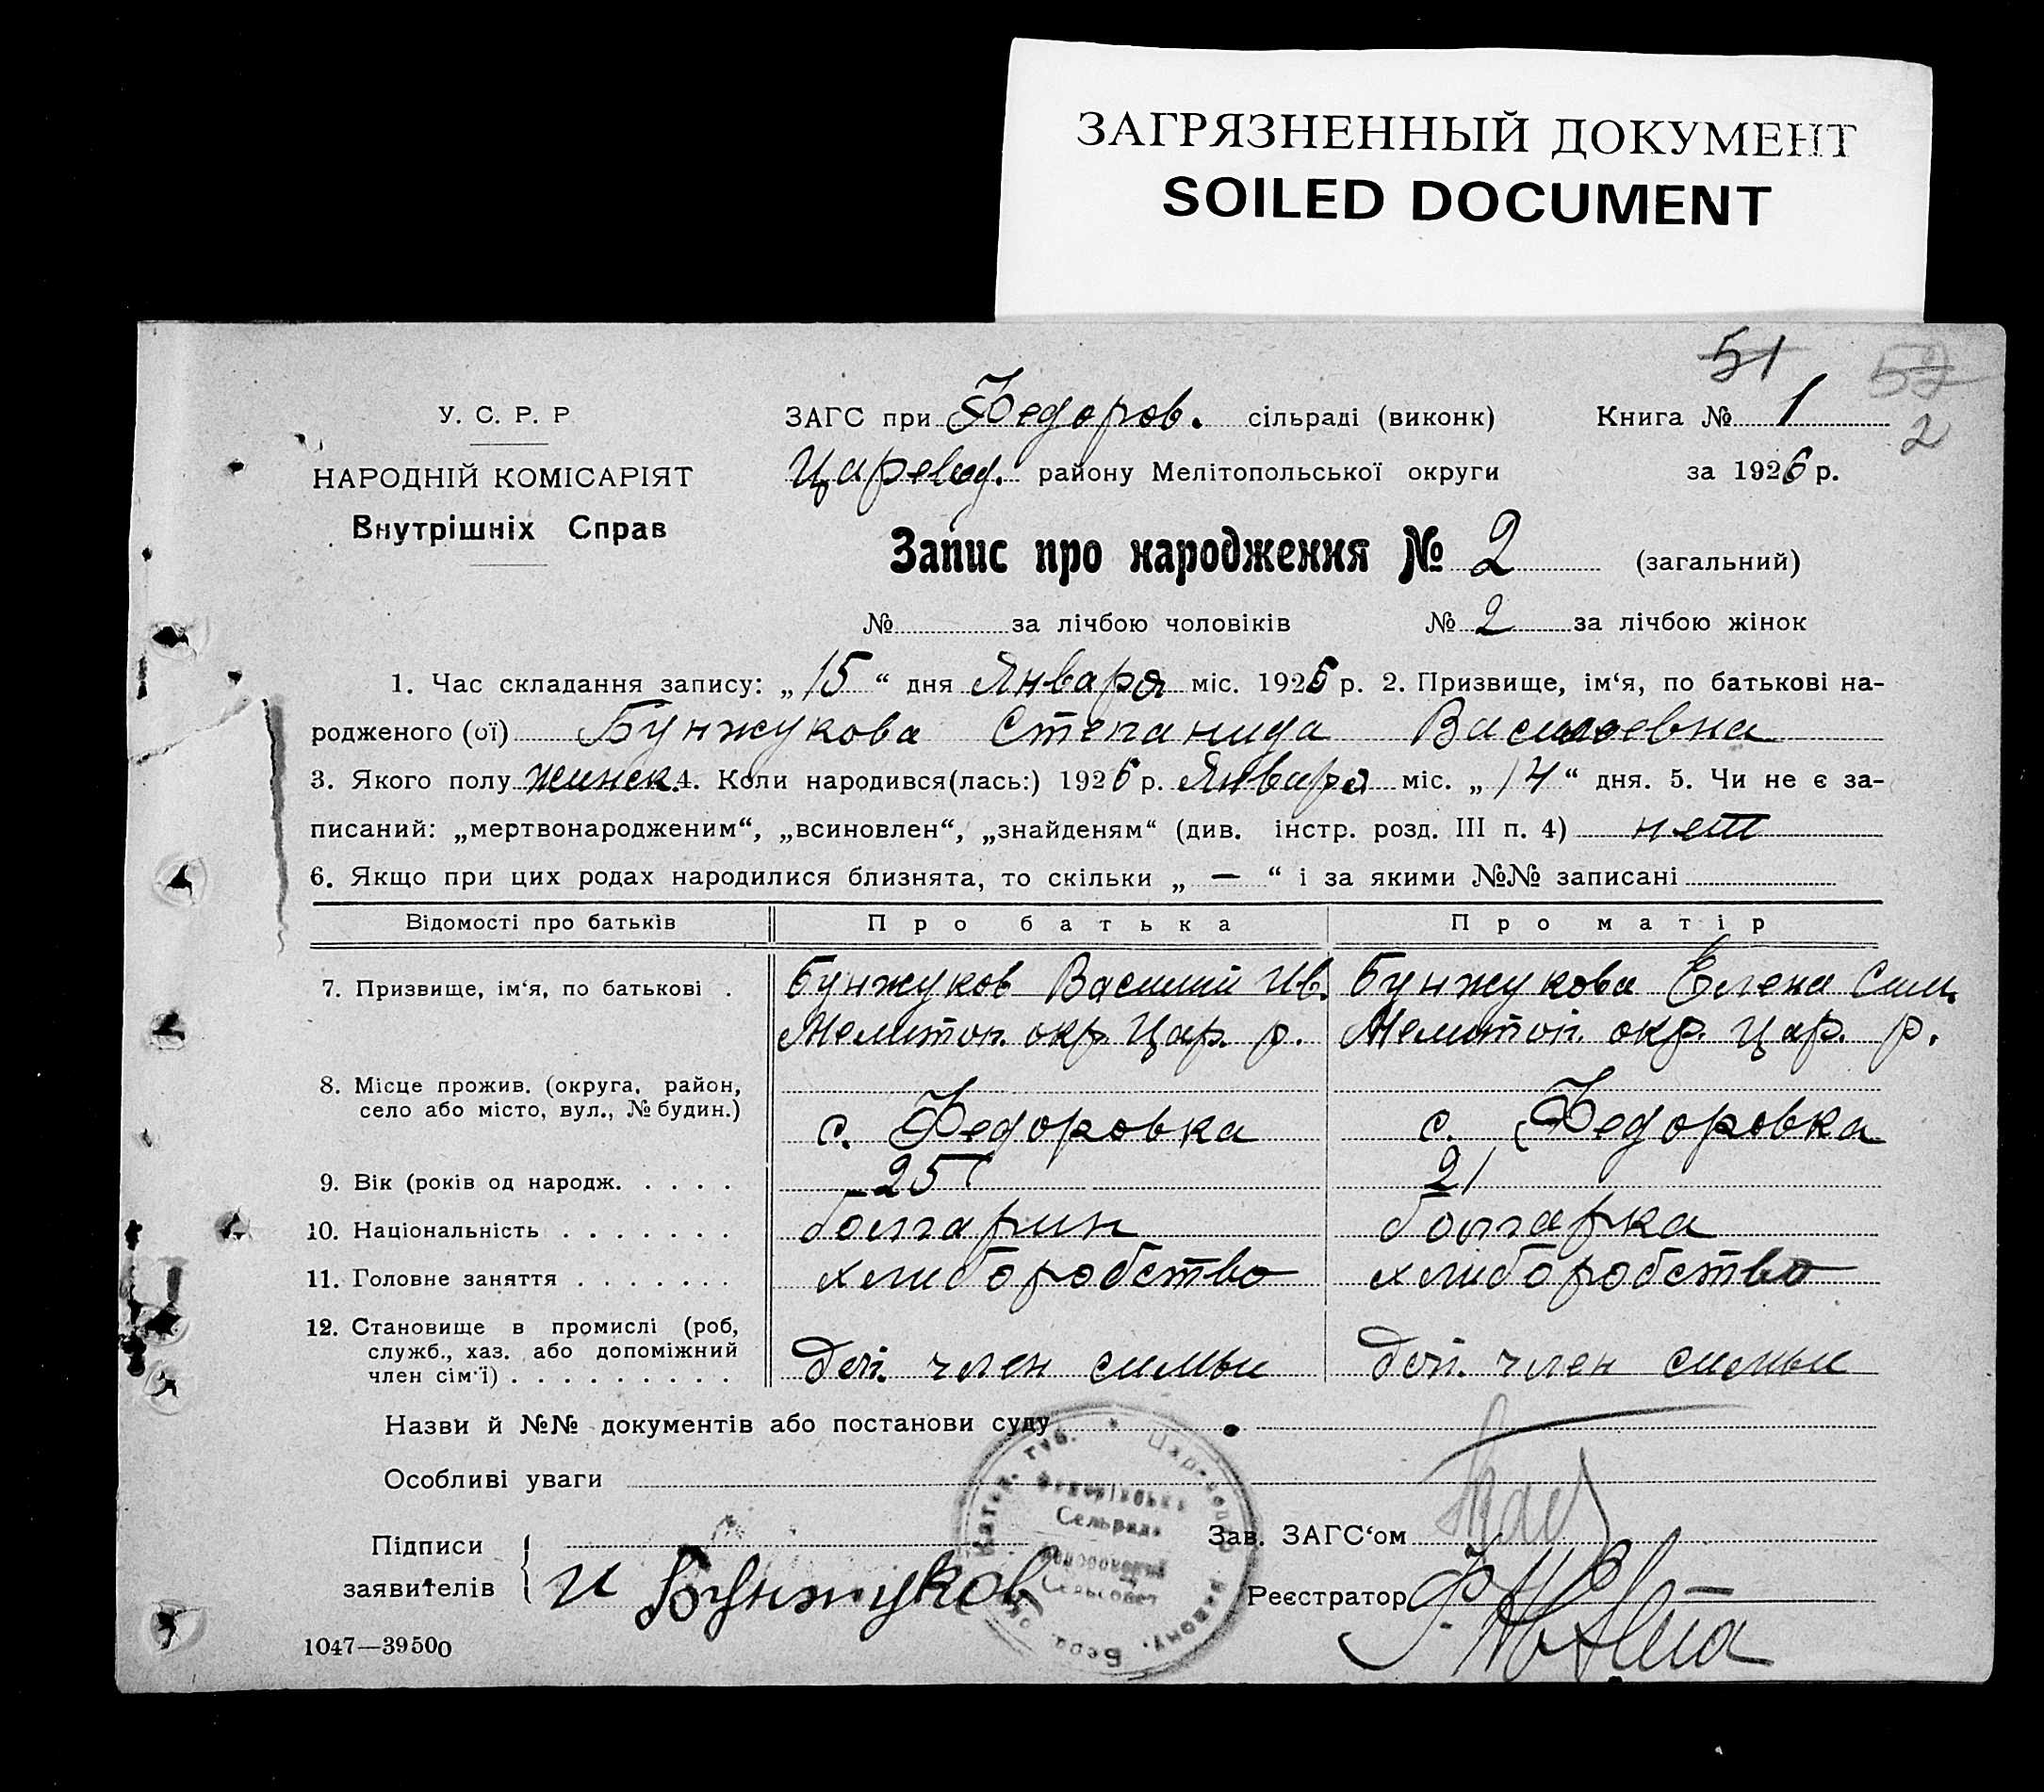 ЗАГРЯЗНЕННЫЙ ДОКУМЕНТ
SOILED DOCUMENT
51
52
2
У. С. Р. Р
НАРОДНІЙ КОМІСАРІЯТ
Внутрішніх Справ
ЗАГС при Федоров. сільраді (виконк) Книга № 1
Царевод. району Мелітопольської округи за 1926 р.
Запис про народження № 2 (загальний)
№ за лічбою чоловіків № 2 за лічбою жінок
1. Час складання запису: „15“ дня Января міс. 1926 р. 2. Призвище, ім‘я, по батькові на-
родженого (ої) Бунжукова Степанида Васильевна
3. Якого полу жинск. 4. Коли народився(лась:) 1926 р. Января міс. „14“ дня. 5. Чи не є за-
писаний: „мертвонародженим“, „всиновлен“, „знайденям“ (див. інстр. розд. III п. 4) нет
6. Якщо при цих родах народилися близнята, то скільки „ — “ і за якими №№ записані
Відомості про батьків Про батька Про матір
7. Призвище, ім‘я, по батькові . Бунжуков Василий Ив. Бунжукова Елена Сем.
Мелитоп. окр. Цар. р. Мелитоп. окр. Цар. р.
8. Місце прожив. (округа, район,
село або місто, вул., № будин.) с. Федоровка с. Федоровка
9. Вік (років од народж. . . . . 25 21
10. Національність . . . . . . . болгарин болгарка
11. Головне заняття . . . . . . . хлиборобство хлиборобство
12. Становище в промислі (роб,
служб., хаз. або допоміжний
член сім‘ї) . . . . . . . . . Доп. член симьи Доп. член симьи
Назви й №№ документів або постанови суду
Особливі уваги
Сельрада
Сельсовет
Підписи
заявителів и Бунжуков
Зав. ЗАГС‘ом
Реєстратор
1047—39500